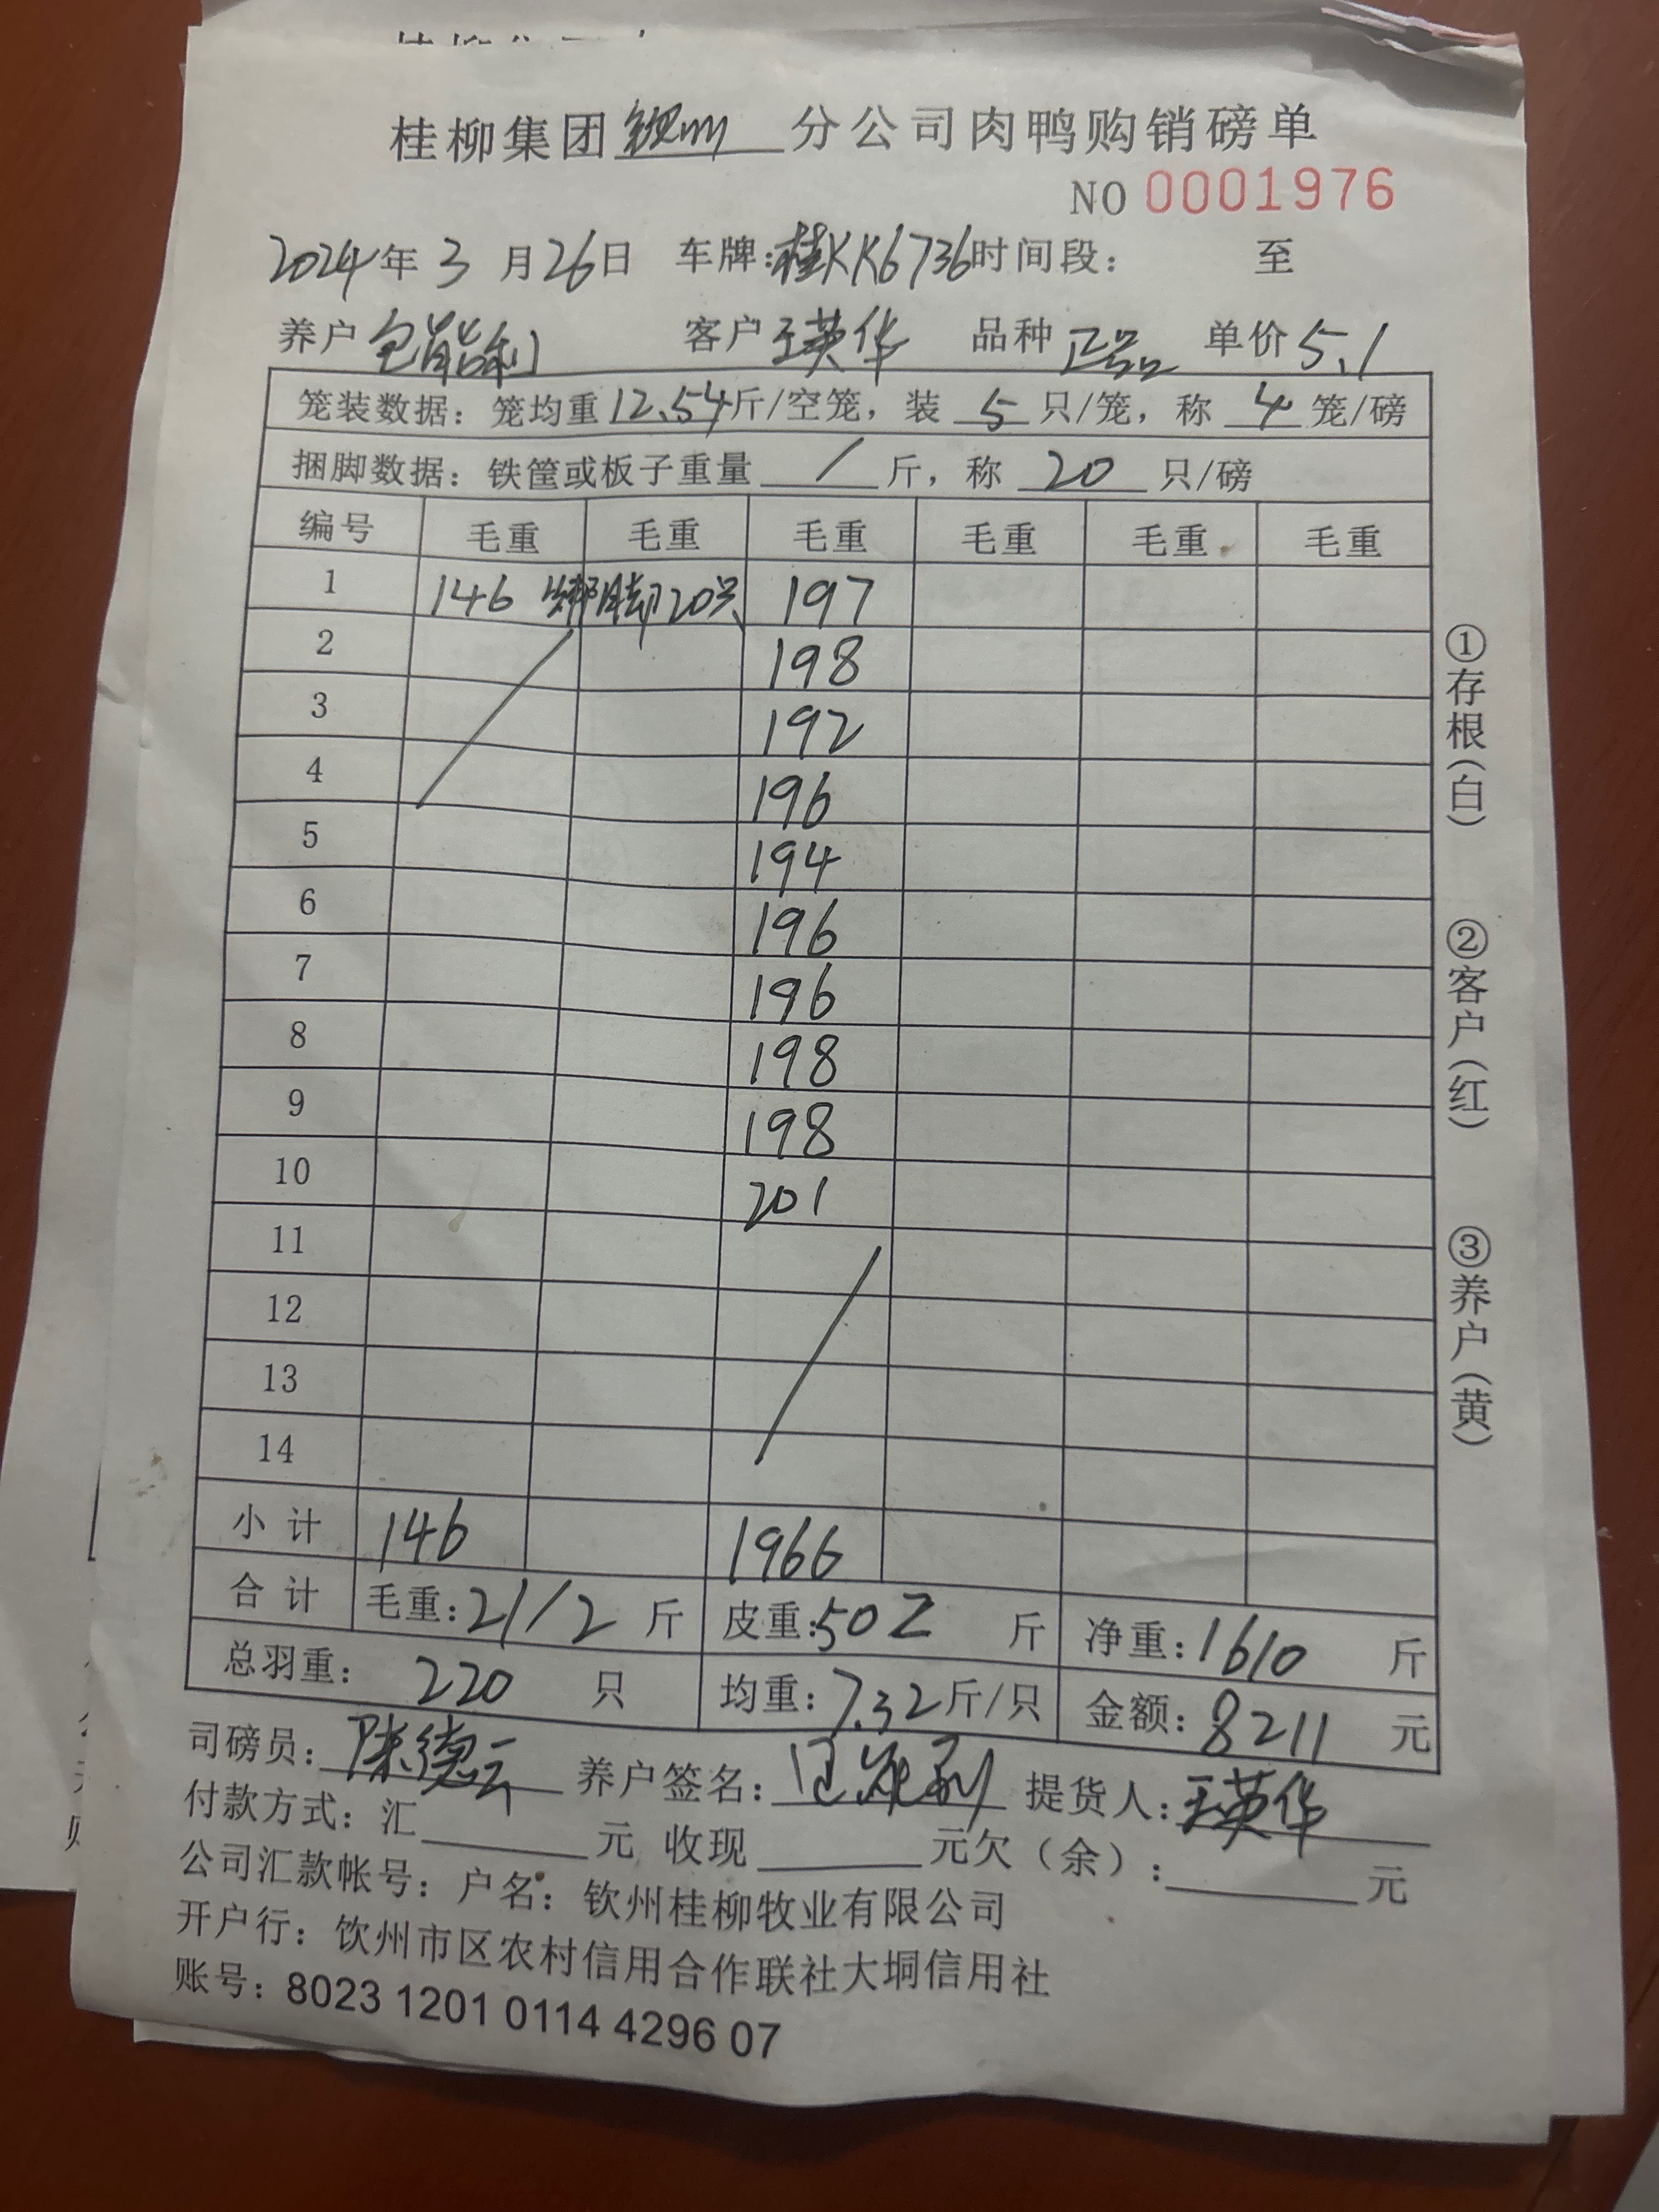 桂柳集团钦州分公司肉鸭购销磅单
NO 0001976
2024年3月26日 车牌:桂KK6736 时间段: 至
养户 包能利 客户 王英华 品种 正品 单价 5.1
笼装数据: 笼均重12.54斤/空笼, 装 5 只/笼, 称 4 笼/磅
捆脚数据: 铁筐或板子重量 / 斤, 称 20 只/磅
编号 毛重 毛重 毛重 毛重 毛重 毛重
1 146 绑脚20只 197
2 198
3 192
4 196
5 194
6 196
7 196
8 198
9 198
10 201
11
12
13
14
小计 146 1966
合计 毛重:2112斤 皮重:502斤 净重:1610斤
总羽重: 220 只 均重:7.32斤/只 金额:8211元
司磅员: 陈德云 养户签名: 提货人:王英华
付款方式: 汇 元 收现 元欠(余): 元
公司汇款帐号: 户名: 钦州桂柳牧业有限公司
开户行: 饮州市区农村信用合作联社大垌信用社
账号: 8023 1201 0114 4296 07
①存根(白)
②客户(红)
③养户(黄)